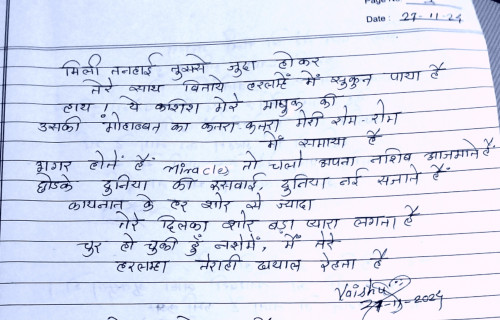 Page No
Date: 27-11-24
मिली तनहाई तुमसे जुदा होकर
तेरे साथ बिताये हरलम्हें में सुकुन पाया है
हाय! ये कशिश मेरे माशुक की
उसकी मोहाब्बत का कतरा-कतरा मेरी रोम-रोम
में समाया है
अगर होते हैं miracles तो चलो अपना नशिब आजमाते है।
छोडके दुनिया की रुसवाई, दुनिया नई सजाते हैं
कायनात के हर शोर से ज्यादा
तेरे दिलका शोर बड़ा प्यारा लगता है
चुर हो चुकी हुँ नशेमें, में तेरे
हरलम्हा तेराही खयाल रेहता है
Vaishu
27-11-2024